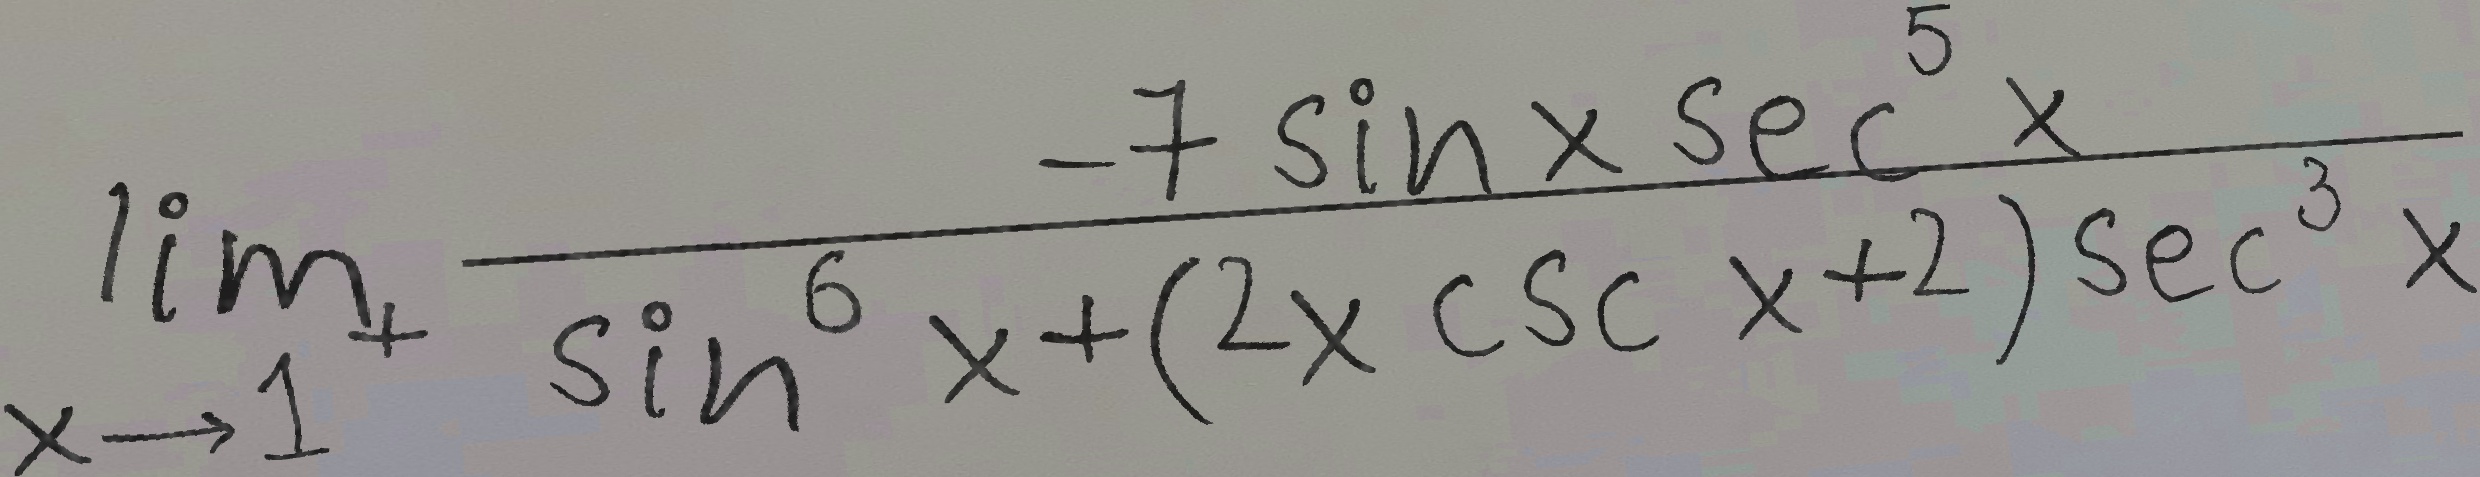 \lim_{x \to 1^+} \frac{-7 \sin x \sec^5 x}{\sin^6 x + (2x \csc x + 2) \sec^3 x}